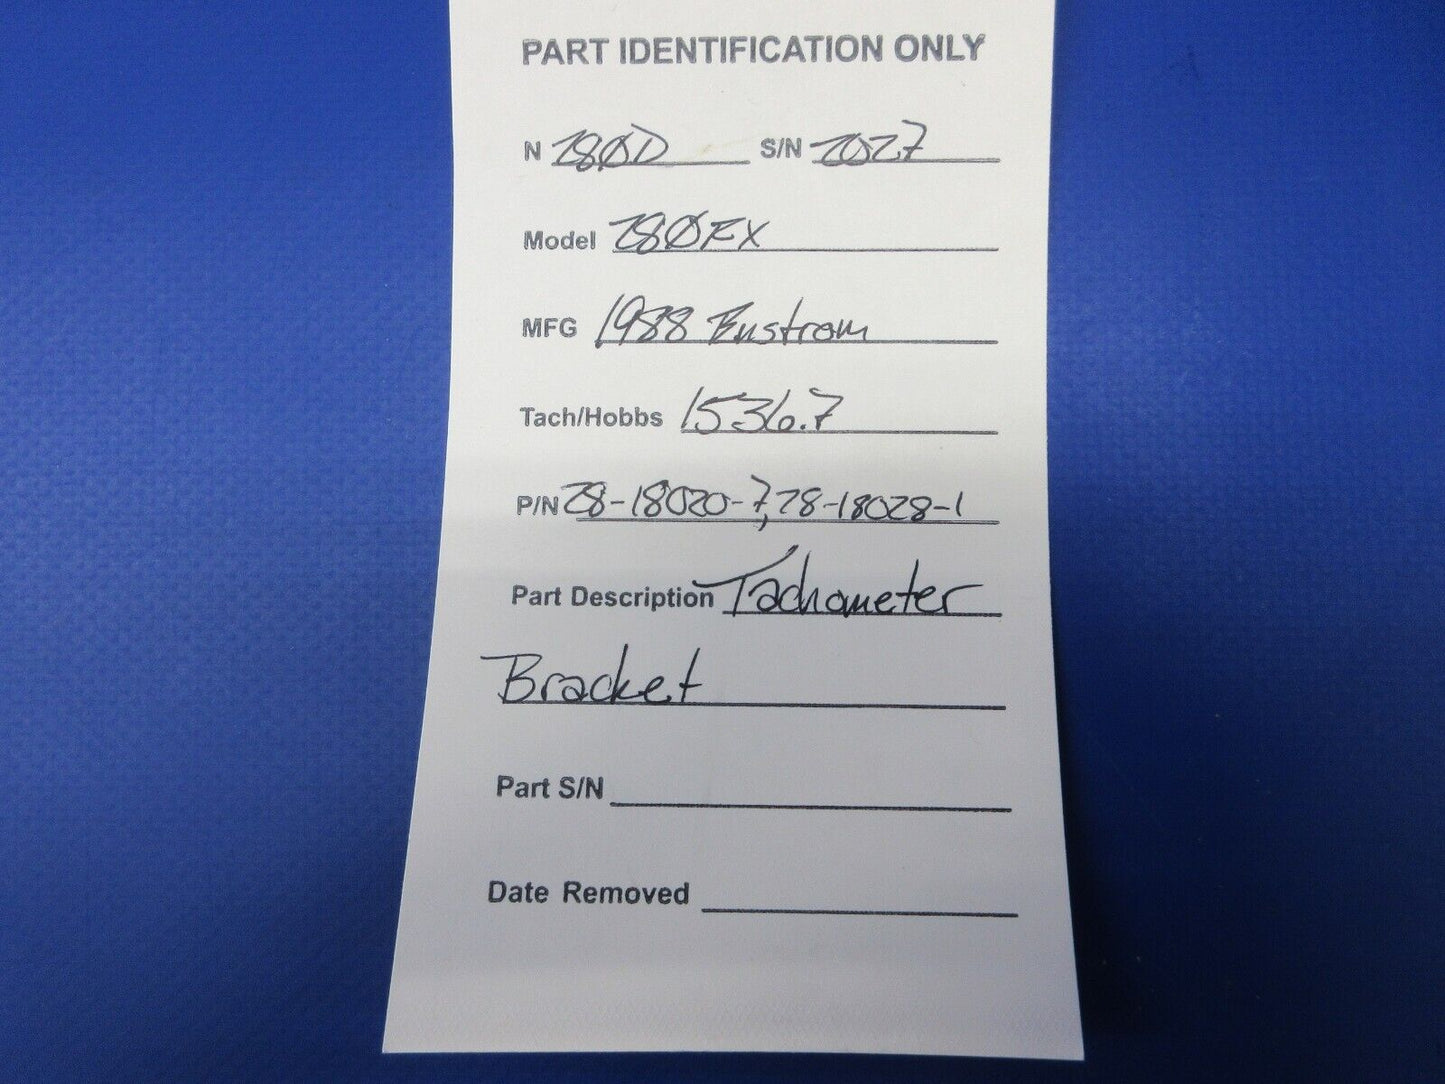 PART IDENTIFICATION ONLY
N 280D S/N 2027
Model 280FX
MFG 1988 Enstrom
Tach/Hobbs 1536.7
P/N 28-18020-7, 28-18028-1
Part Description Tachometer
Bracket
Part S/N
Date Removed